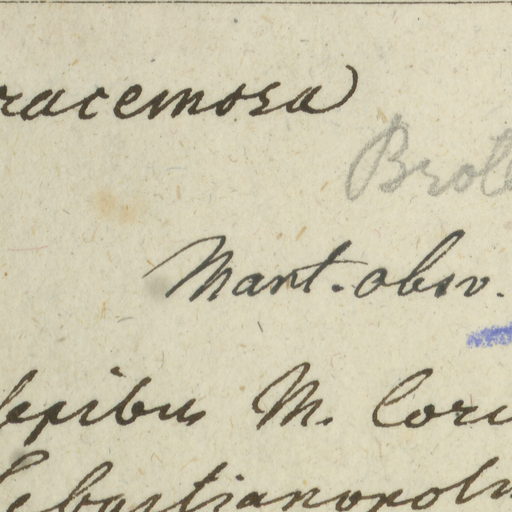 racemosa
Brot
Mart. obsv.
sepibus M. Cor
Sebastianopol